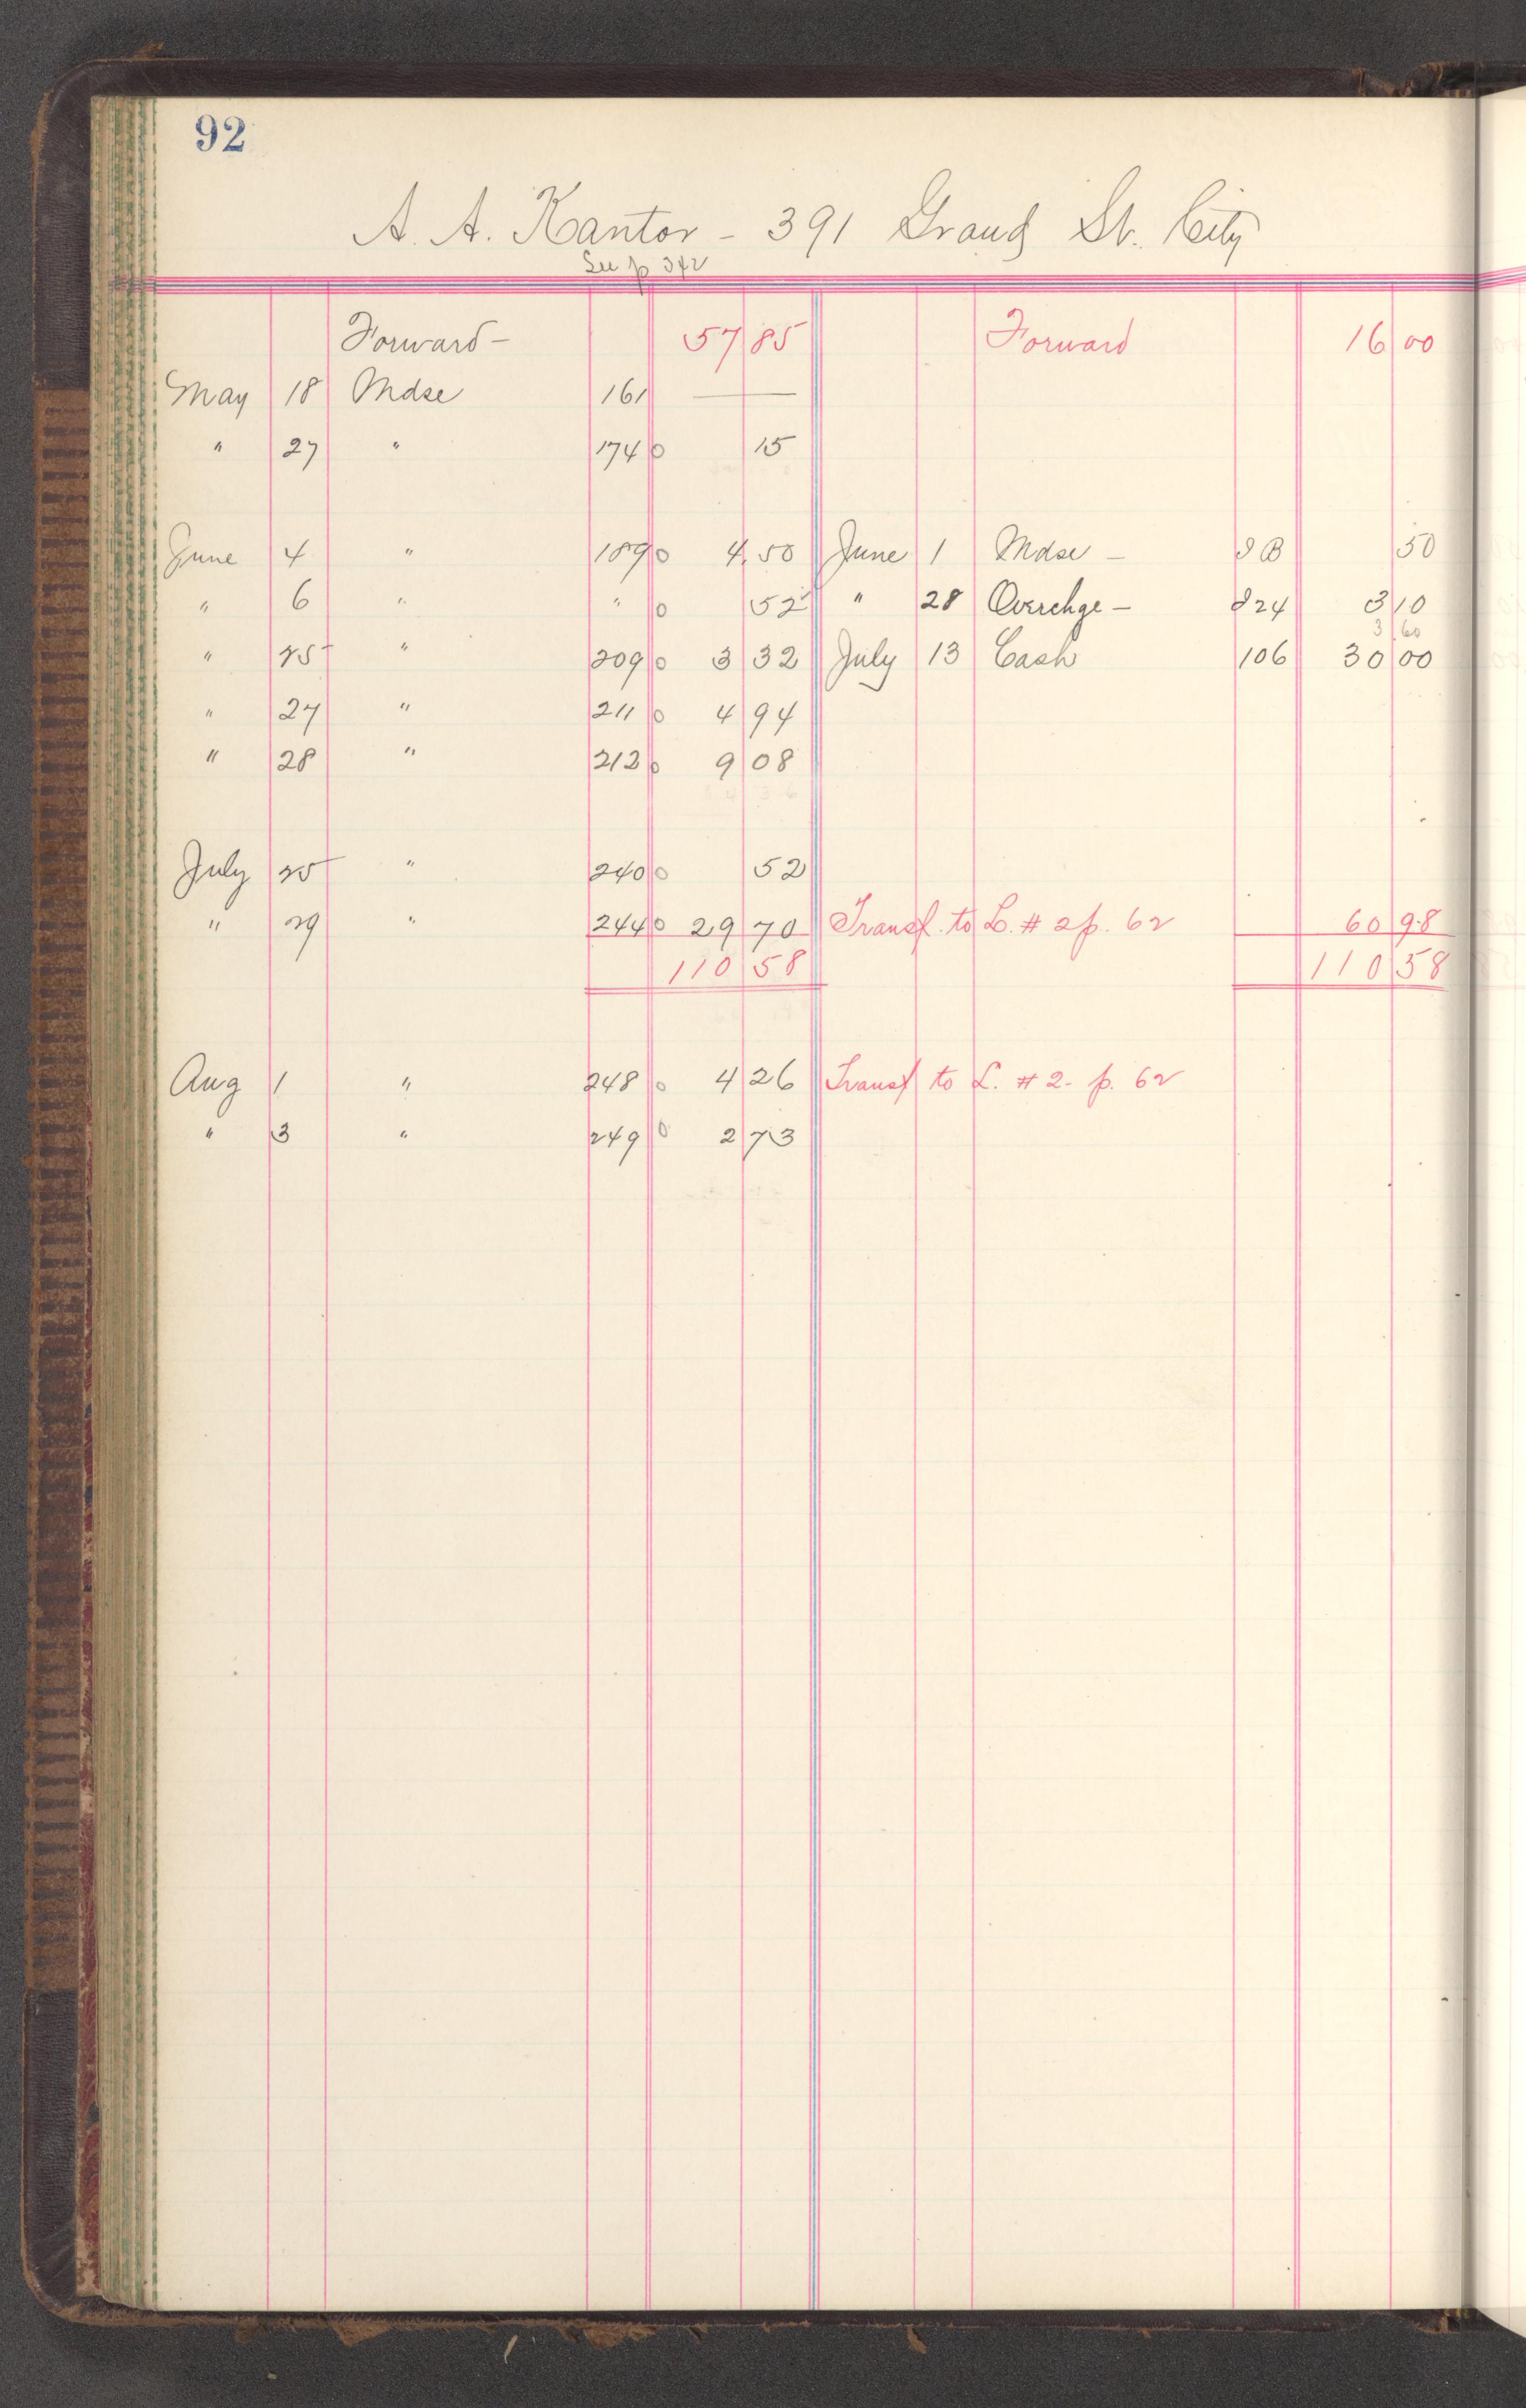 92
A. A. Kantor - 391 Grand St. City
See p 342
Forward - 57 85 Forward 16 00
May 18 Mdse 161 —
" 27 " 174 0 15
June 4 " 189 0 4.50 June 1 Mdse - 50
" 6 " " 0 52 " 28 Overchge - 324 3 10
3 60
" 25 " 209 0 3 32 July 13 Cash 106 30 00
" 27 " 211 0 4 94
" 28 " 212 0 9 08
July 25 " 240 0 52
" 29 " 244 0 29 70 Transf. to L. # 2 p. 62 60 98
110 58 110 58
Aug 1 " 248 0 4 26 Transf to L. # 2 - p. 62
" 3 " 249 0 2 73